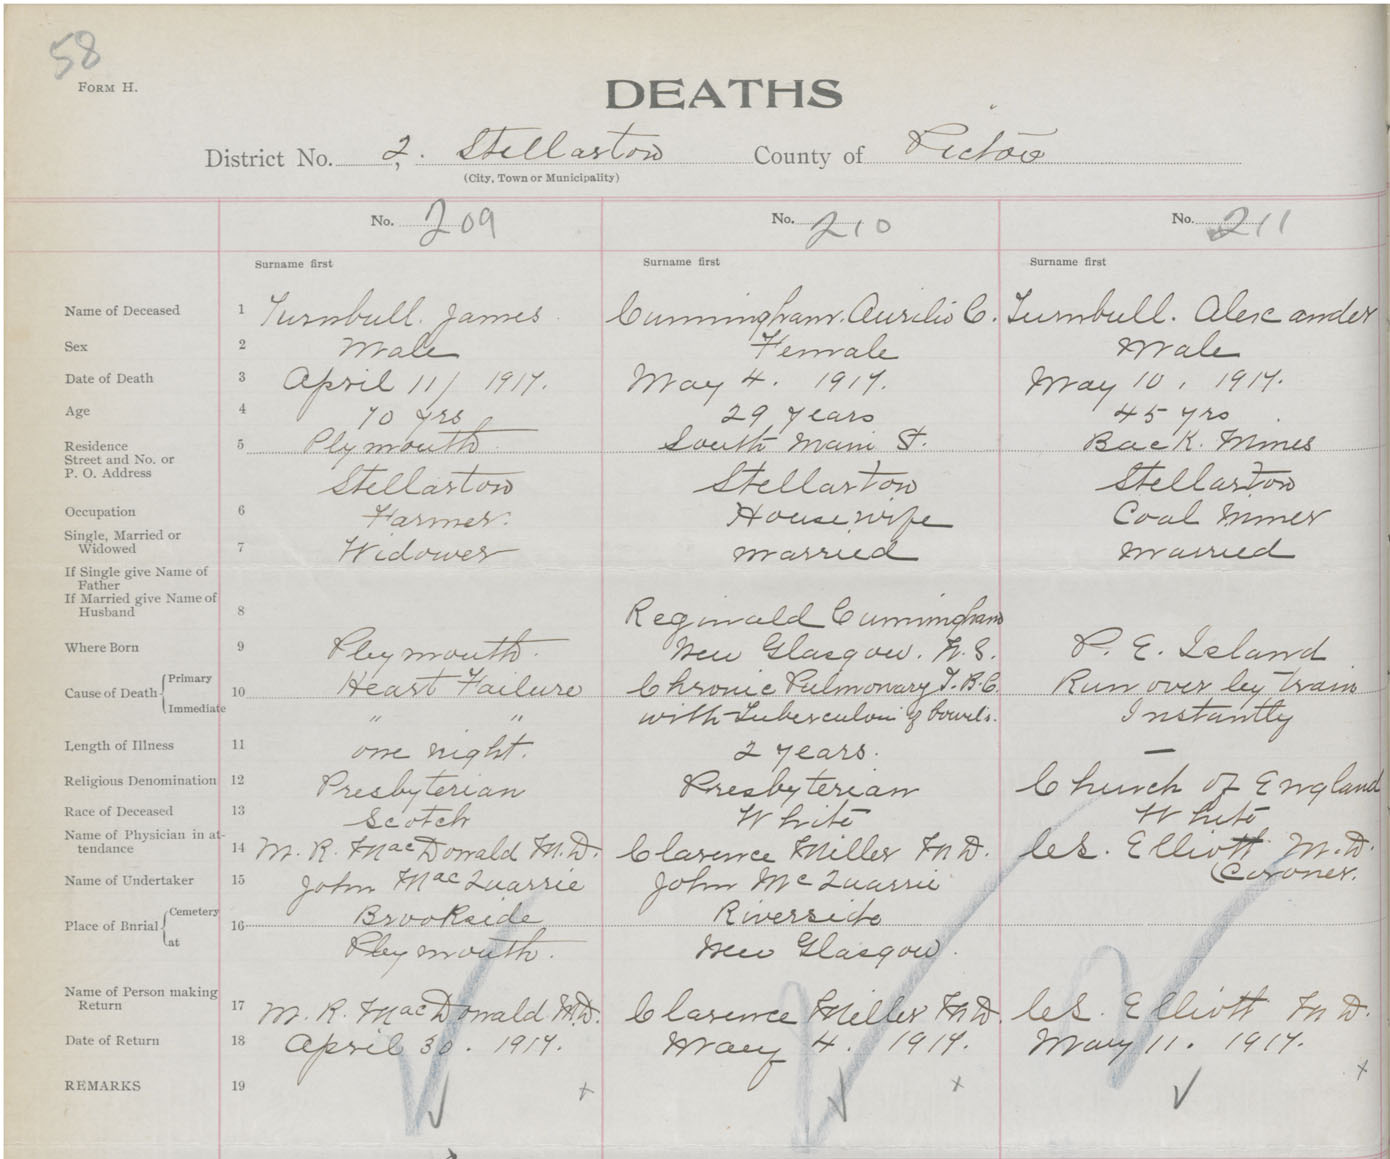 58
FORM H.
DEATHS
District No. 2. Stellarton County of Pictou
(City, Town or Municipality)
No. 209 No. 210 No. 211
Surname first Surname first Surname first
Name of Deceased 1 Turnbull. James. Cunningham. Aurilio C. Turnbull. Alexander
Sex 2 Male Female Male
Date of Death 3 April 11/ 1917. May 4. 1917. May 10. 1917.
Age 4 70 yrs 29 years 45 yrs
Residence 5 Plymouth South Main St. Back Mines
Street and No. or
P. O. Address Stellarton Stellarton Stellarton
Occupation 6 Farmer. Housewife Coal Miner
Single, Married or
Widowed 7 Widower Married Married
If Single give Name of
Father
If Married give Name of
Husband 8 Reginald Cunningham
Where Born 9 Plymouth. New Glasgow. N.S. P. E. Island
Cause of Death { Primary 10 Heart Failure Chronic Pulmonary T.B.C. Run over by train
Immediate " " with Tuberculosis of bowels. Instantly
Length of Illness 11 one night. 2 years. —
Religious Denomination 12 Presbyterian Presbyterian Church of England
Race of Deceased 13 Scotch White White
Name of Physician in at-
tendance 14 M. R. MacDonald M.D. Clarence Miller M.D. C.S. Elliott M.D.
Coroner.
Name of Undertaker 15 John MacQuarrie John McQuarrie
Place of Burial { Cemetery 16 Brookside Riverside
at Plymouth. New Glasgow.
Name of Person making
Return 17 M. R. MacDonald M.D. Clarence Miller M.D. C.S. Elliott M.D.
Date of Return 18 April 30. 1917. May 4. 1917. May 11. 1917.
REMARKS 19 x x x